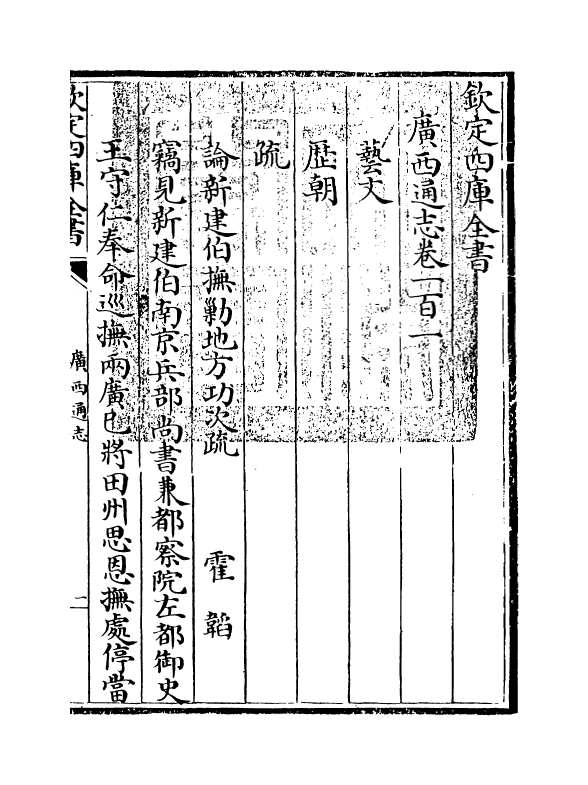 欽定四庫全書
廣西通志卷一百一
藝文
歴朝
疏
論新建伯撫勦地方功次疏　霍韜
竊見新建伯南京兵部尚書兼都察院左都御史
王守仁奉命巡撫兩廣已將田州思恩撫處停當
欽定四庫全書
廣西通志